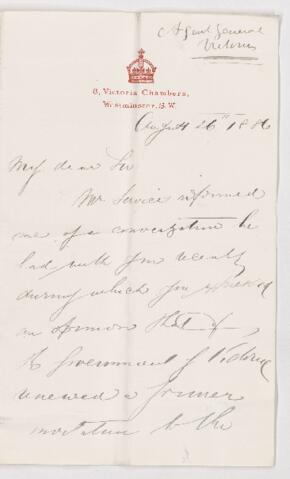 Agent General
Victoria
8, Victoria Chambers,
Westminster, S.W.
August 26th 1886
My dear Sir
Mr Service informed
me of a conversation he
had with you recently
during which you expressed
an opinion that if
the Government of Victoria
renewed a former
invitation to the